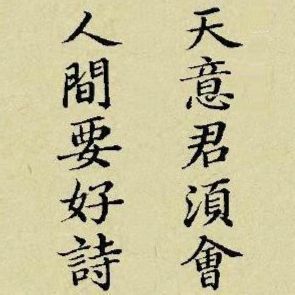 天意君須會
人間要好詩